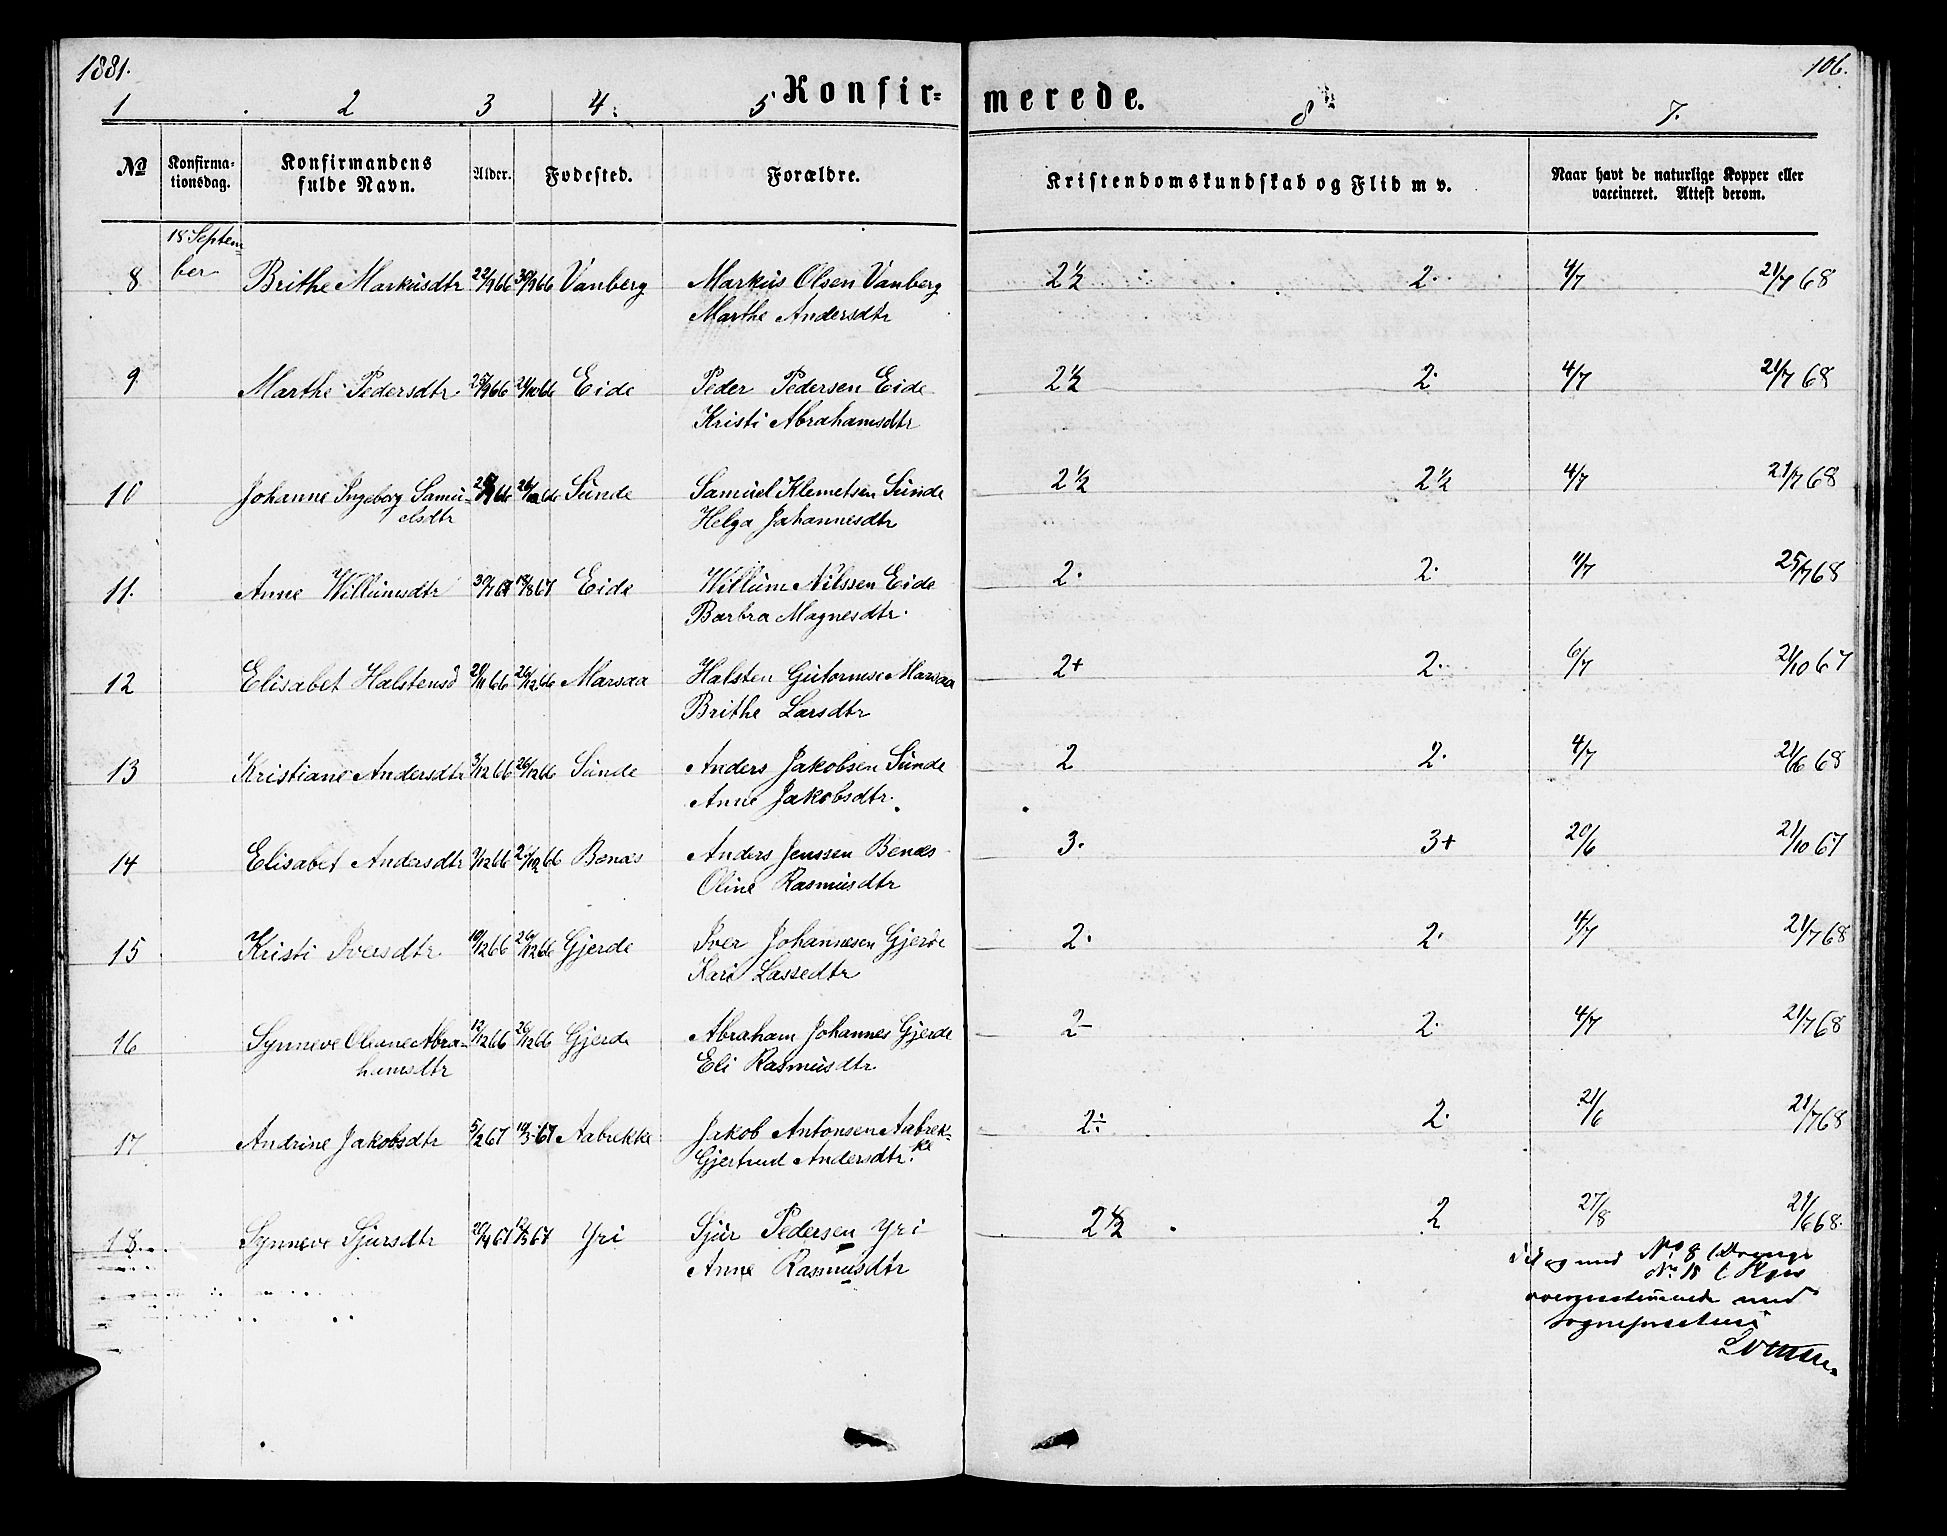 1881.
106.
Konfir=
merede.
1 2 3 4. 5 8 7.
No
Konfirma-
tionsdag.
Konfirmandens
fulde Navn.
Alder.
Fødested.
Forældre.
Kristendomskundskab og Flid m v.
Naar havt de naturlige Kopper eller
vaccineret. Attest derom.
18 Septem=
ber
8 Brithe Markusdtr 22/9 66 30/9 66 Vanberg Markus Olsen Vanberg 2½ 2. 4/7 21/7 68
Marthe Andersdtr
9 Marthe Pedersdtr 25/9 66 21/10 66 Eide Peder Pedersen Eide 2½ 2. 4/7 21/7 68
Kristi Abrahamsdtr
10 Johanne Ingeborg Samu- 66 66 Sunde Samuel Klemetsen Sunde 2½ 2½ 4/7 21/7 68
elsdtr Helga Johannesdtr
11. Anne Willumsdtr 18/8 67 Eide Willum Nilssen Eide 2. 2. 4/7 25/7 68
Barbra Magnesdtr.
12 Elisabet Halstensd 21/11 66 26/12 66 Marsaa Halsten Gutormse Marsaa 2+ 2. 6/7 21/10 67
Brithe Larsdtr
13 Kristiane Andersdtr 3/12 66 26/12 66 Sunde Anders Jakobsen Sunde 2 2. 4/7 21/6 68
Anne Jakobsdtr.
14 Elisabet Andersdtr 12 66 12 66 Benæs Anders Jenssen Benæs 3. 3+ 20/6 21/10 67
Oline Rasmusdtr
15 Kristi Iversdtr 10/12 66 26/12 66 Gjerde Iver Johannesen Gjerde 2. 2. 4/7 21/7 68
Kari Lassedtr
16 Synneve Oleane Abra- 12/12 66 26/12 66 Gjerde Abraham Johannes Gjerde 2- 2. 4/7 21/7 68
hamsdtr Eli Rasmusdtr
17 Andrine Jakobsdtr 5/2 67 19/3 67 Aabrekke Jakob Antonsen Aabrek- 2÷ 2. 21/6 21/7 68
ke
Gjertrud Andersdtr.
18. Synneve Sjursdtr 67 67 Yri Sjur Pedersen Yri 2½ 2 27/8 21/6 68.
Anne Rasmusdtr
til og med No 8 (Drenge
No 18 (Piger
overensstemmende med
Sogneprestens